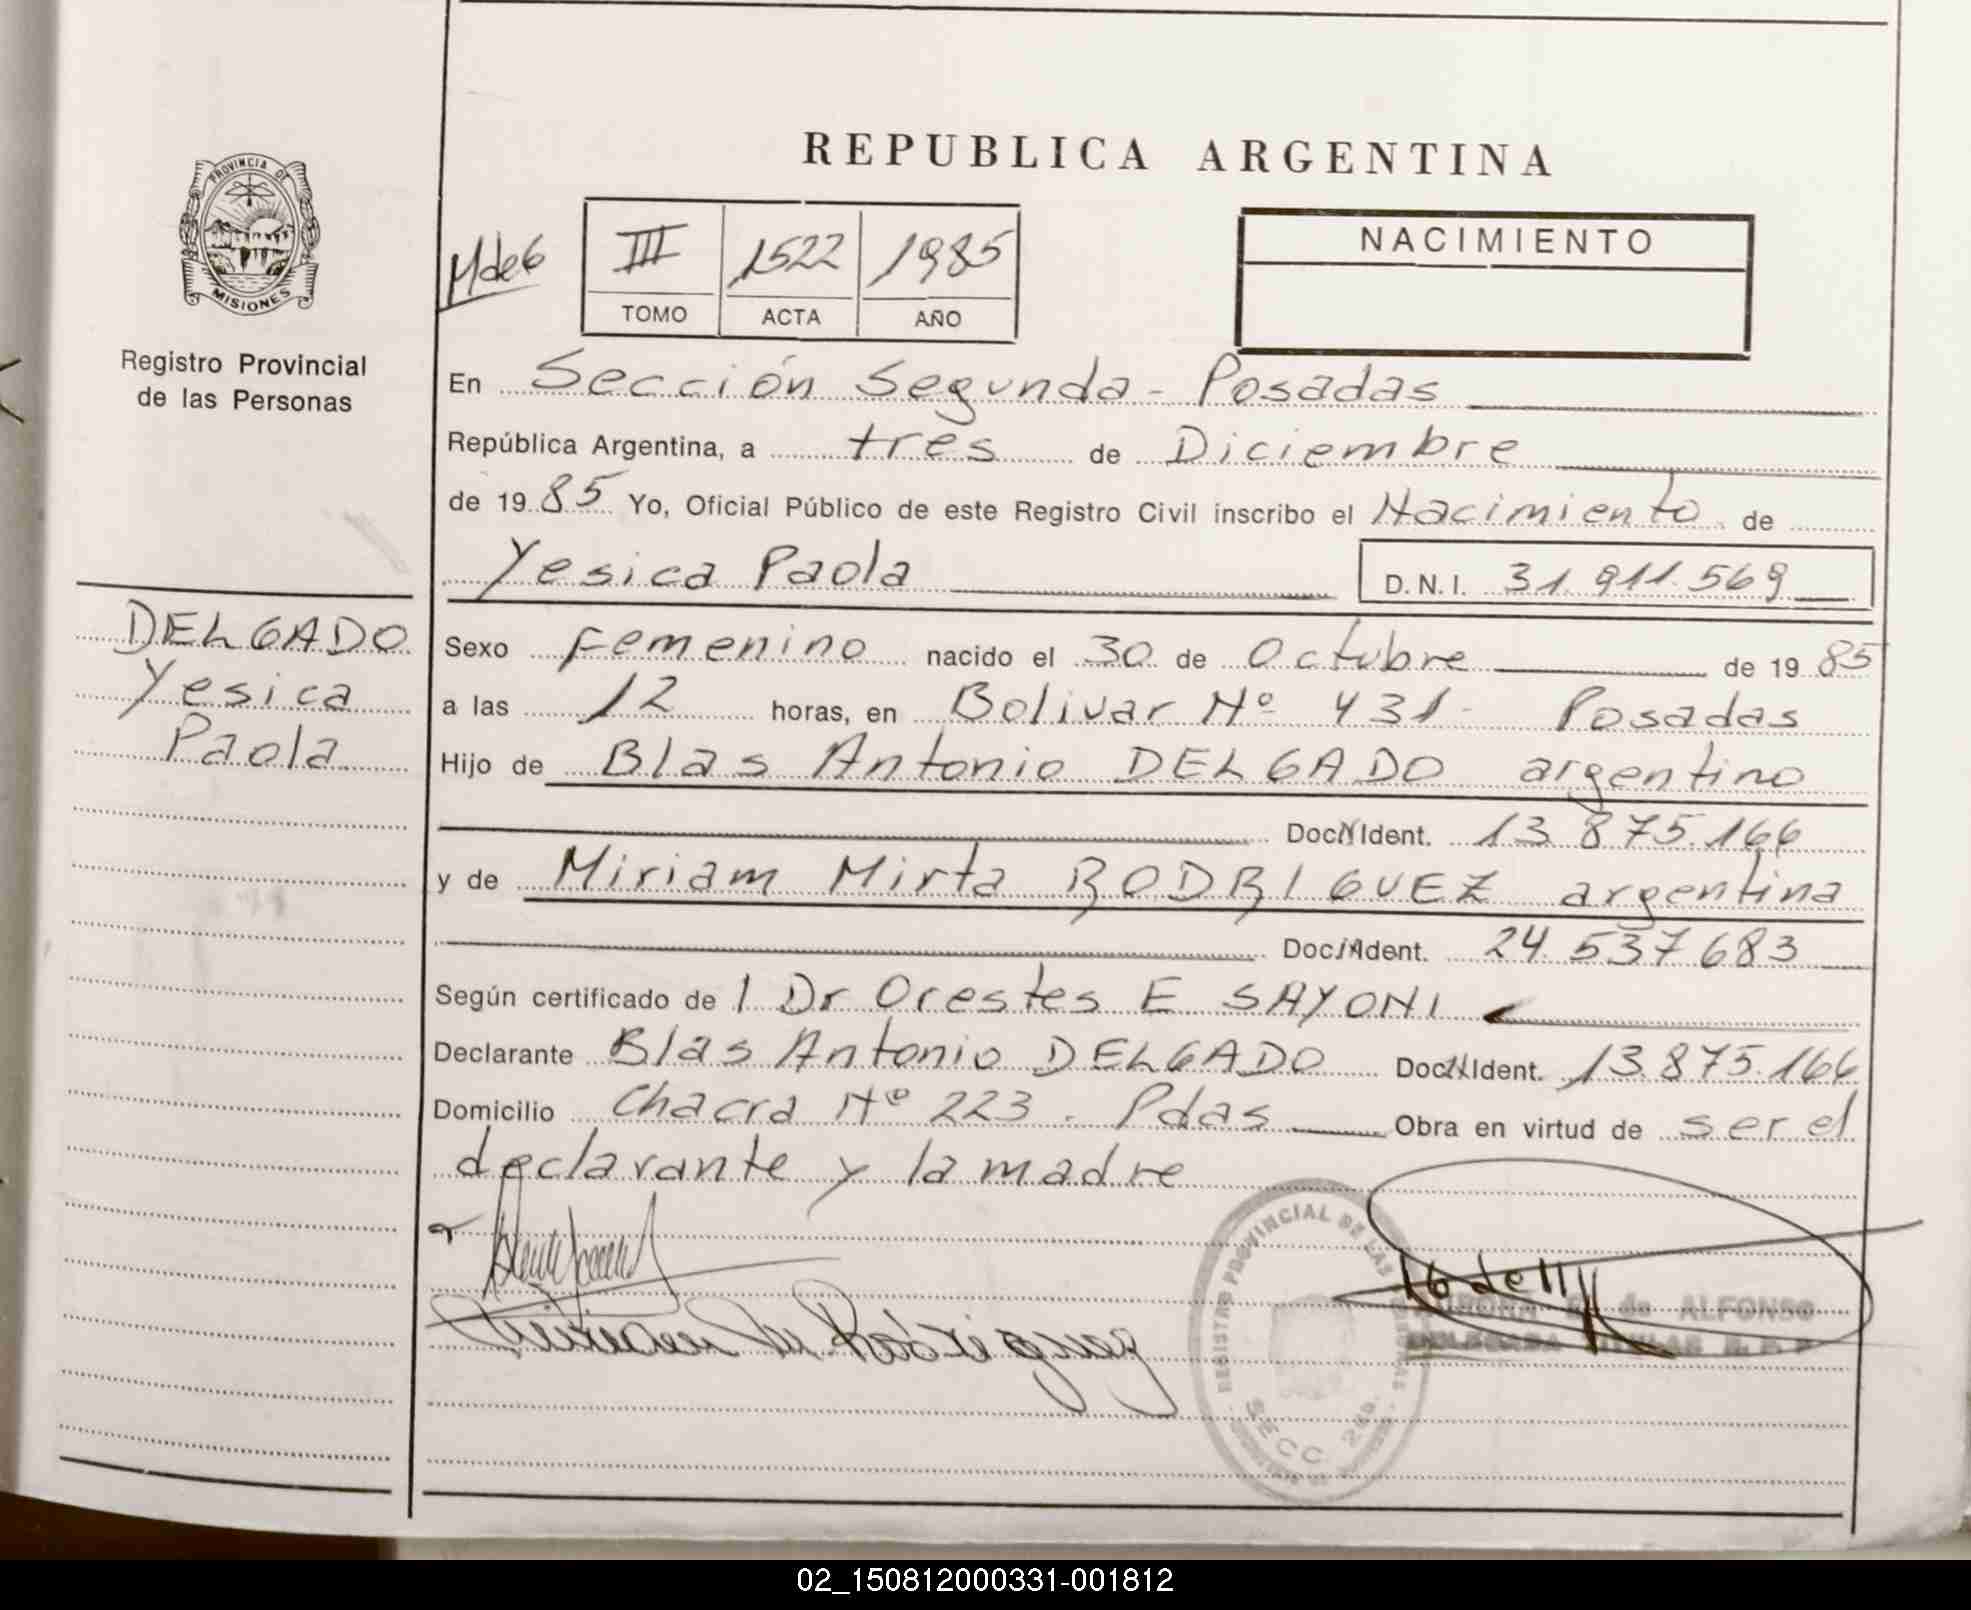 REPUBLICA ARGENTINA
PROVINCIA DE
MISIONES
Registro Provincial
de las Personas
DELGADO
Yesica
Paola
III 1522 1985
TOMO ACTA AÑO
NACIMIENTO
En Sección Segunda - Posadas
República Argentina, a tres de Diciembre
de 1985 Yo, Oficial Público de este Registro Civil inscribo el Nacimiento de
Yesica Paola D.N.I. 31.911.569
Sexo Femenino nacido el 30 de Octubre de 1985
a las 12 horas, en Bolivar Nº 431 - Posadas
Hijo de Blas Antonio DELGADO argentino
Doc. Ident. 13.875.166
y de Miriam Mirta RODRIGUEZ argentina
Doc. Ident. 24.537.683
Según certificado de l Dr Orestes E SAYONI
Declarante Blas Antonio DELGADO Doc. Ident. 13.875.166
Domicilio Chacra Nº 223 - Pdas Obra en virtud de ser el
declarante y la madre
REGISTRO PROVINCIAL DE LAS
de ALFONSO
SECC. 2da.
02_150812000331-001812